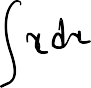 ∫xdx